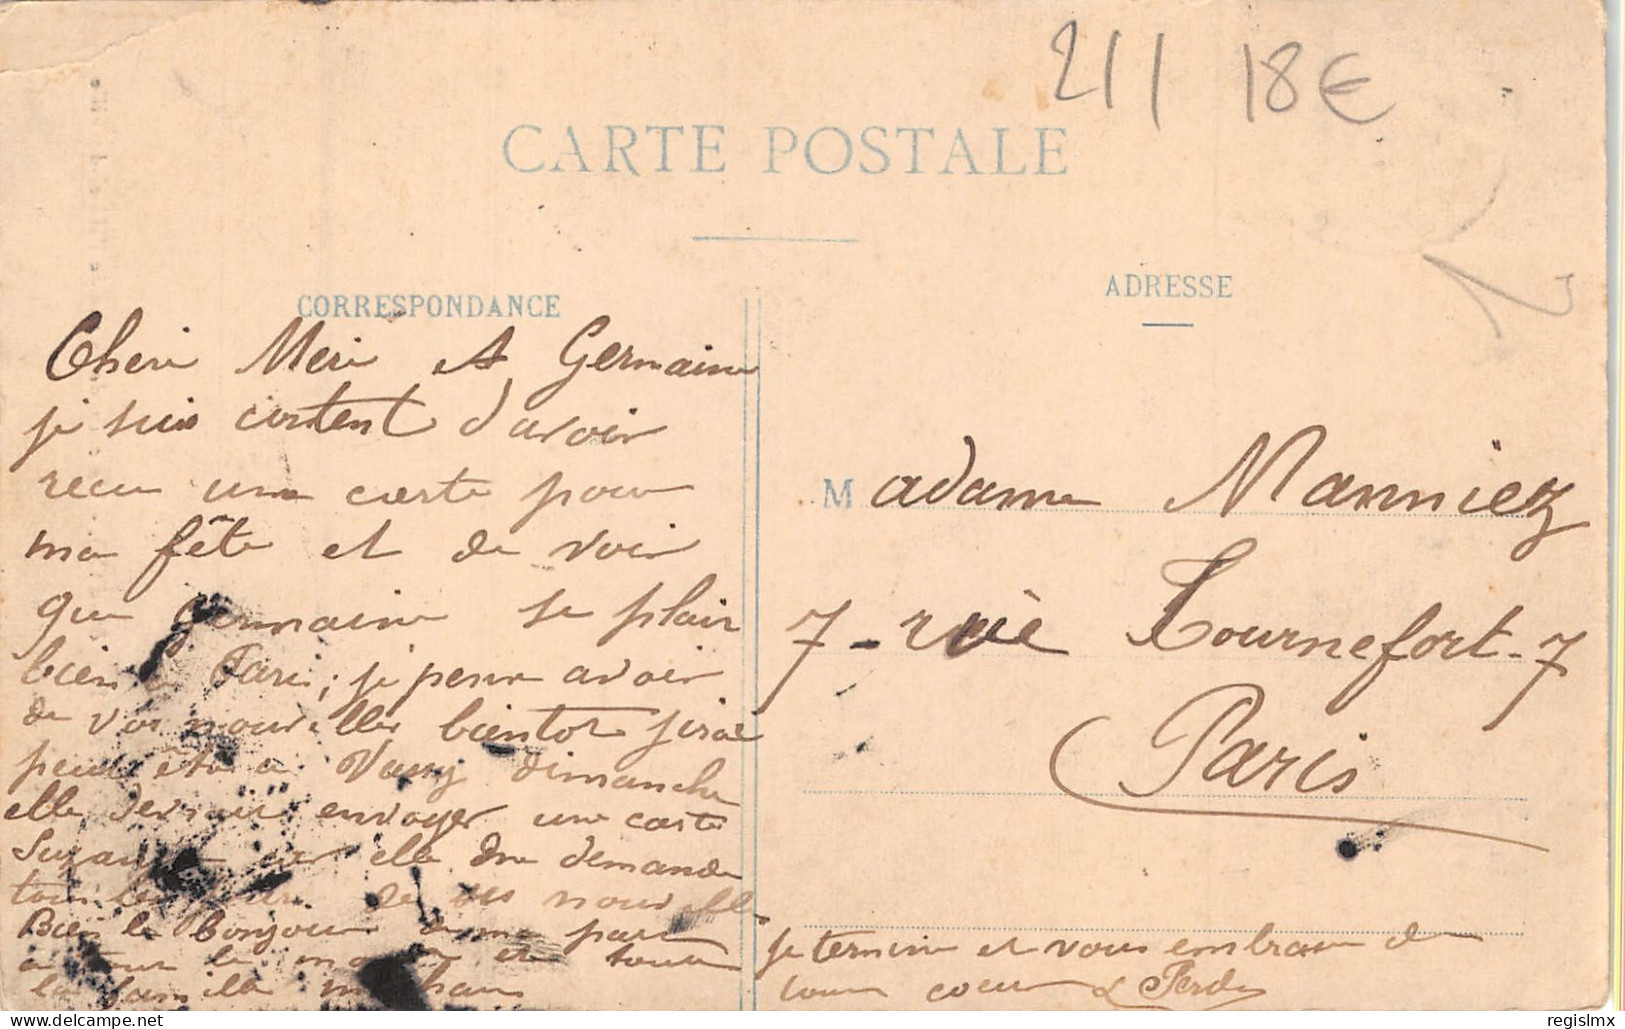 211 18€
CARTE POSTALE
CORRESPONDANCE
Cheri Meri et Germaine
je suis content d'avoir
recu une carte pour
ma fête et de voir
que germaine se plair
bien à Paris; je pense avoir
de vos nouvelles bientot jirai
peut être a Vassy dimanche
elle devrait envoyer une carte
Suzanne car elle me demande
tous les jours de ses nouvelles
Bien le bonjour de ma part
a tour le monde et toute
la famille
ADRESSE
Madame Manniez
7 - rue Tournefort - 7
Paris
je termine et vous embrasse de
tout coeur
regislmx